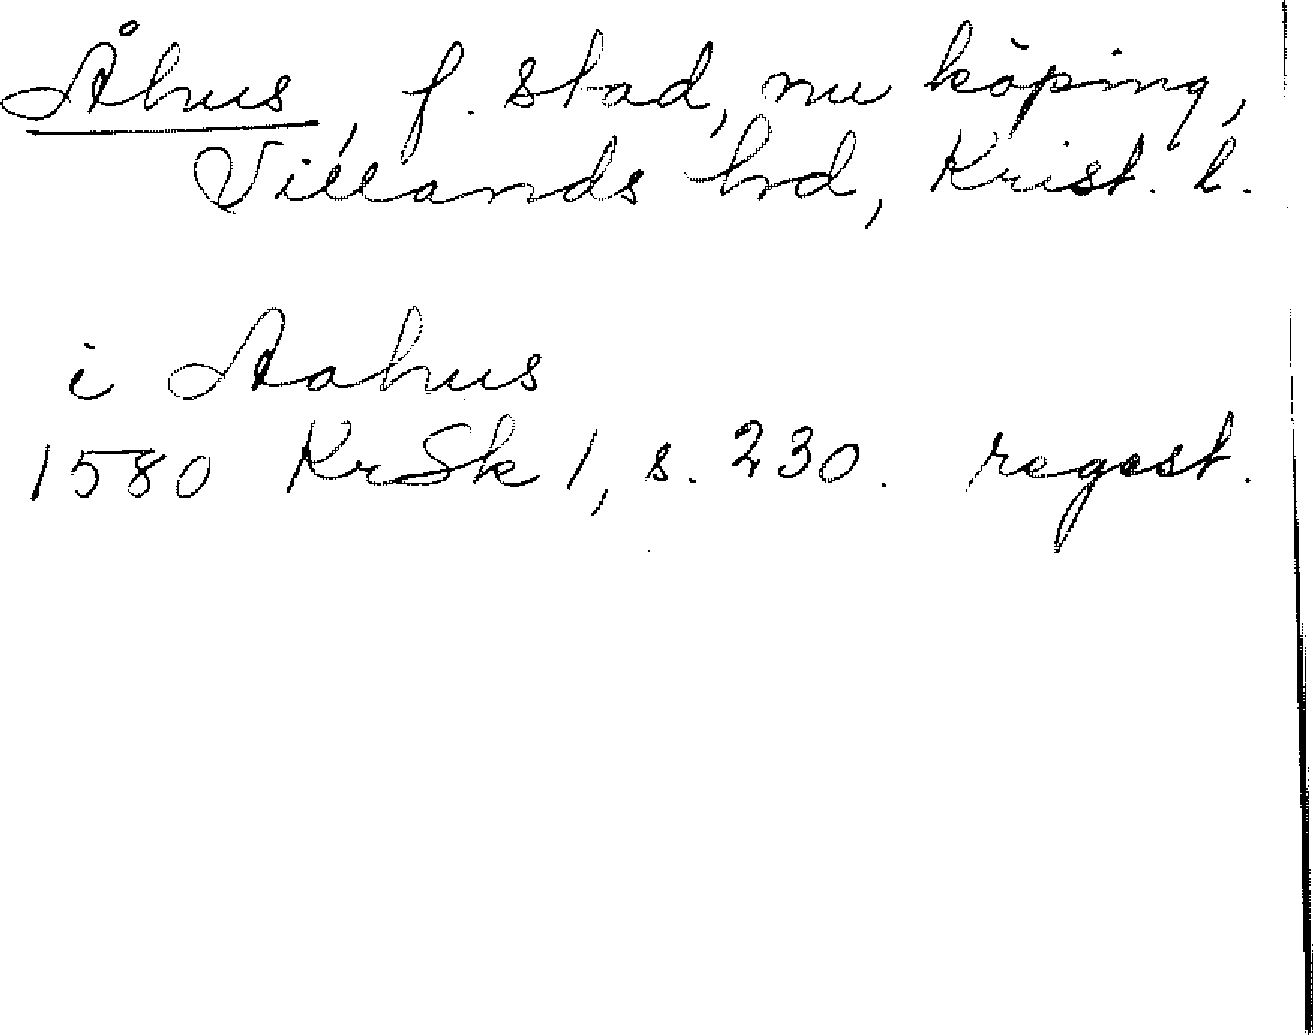 Åhus, f. stad, nu köping,
Villands hd, Krist. l.
i Aahus
1580 KrSk 1, s. 230. regest.